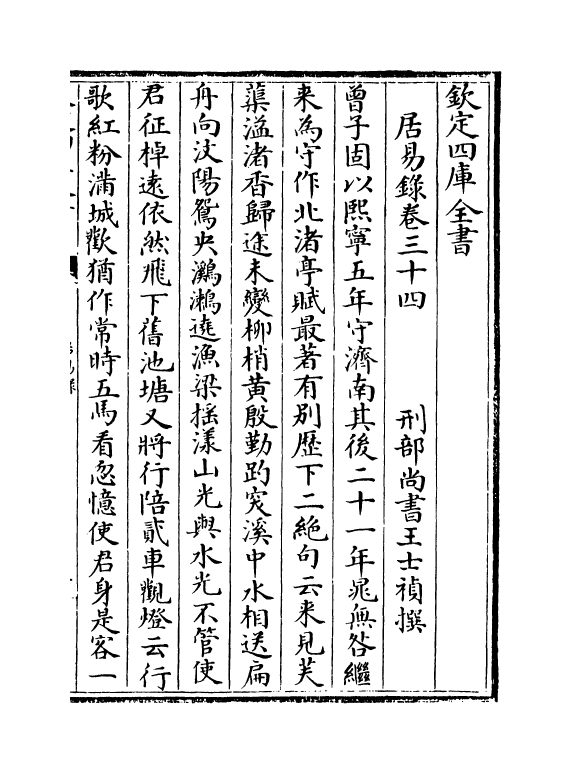 欽定四庫全書
居易錄卷三十四　刑部尚書王士禎撰
曾子固以熙寧五年守濟南其後二十一年晁無咎繼
来為守作北渚亭賦最著有别歷下二絶句云来見芙
蕖溢渚香歸途未變柳梢黄殷勤趵突溪中水相送扁
舟向汶陽鴛央鸂鶒遶漁梁揺漾山光與水光不管使
君征棹遠依然飛下舊池塘又將行陪貳車觀燈云行
歌紅粉滿城歡猶作常時五馬看忽憶使君身是客一